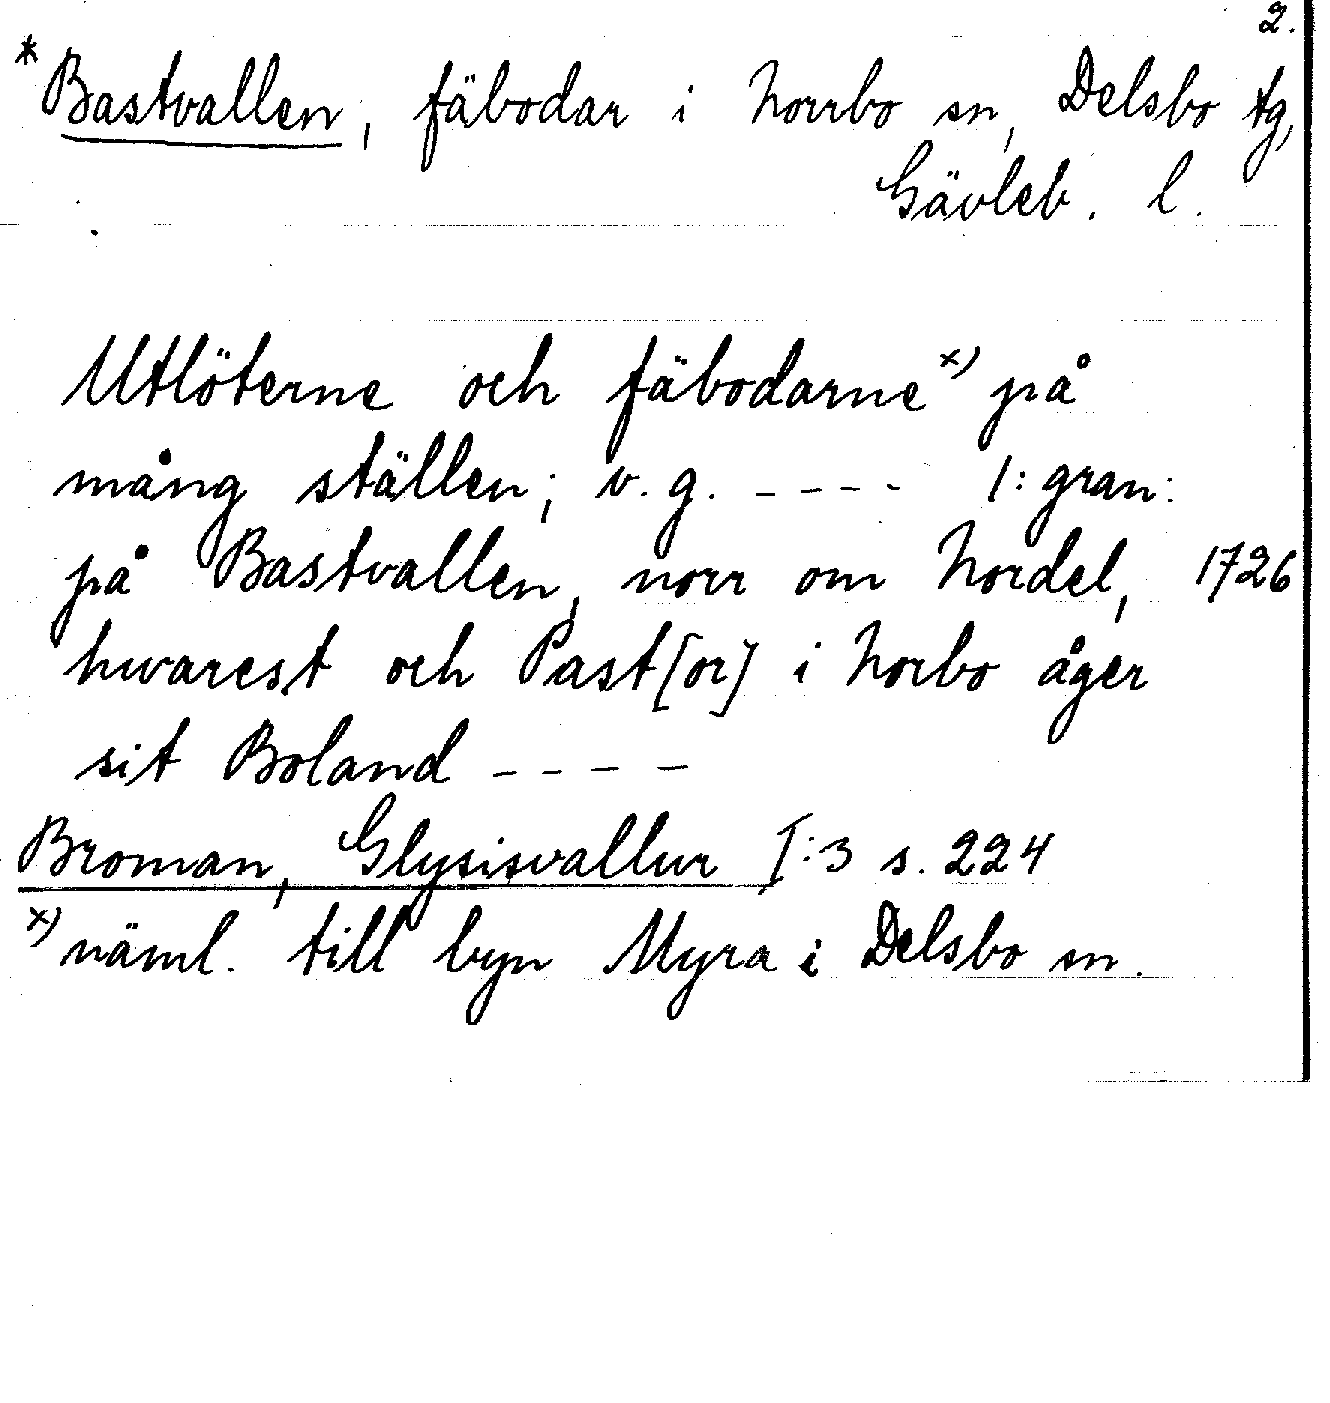 2.
*Bastvallen, fäbodar i Norrbo sn, Delsbo tg,
Gävleb. l.
Utlöterne och fäbodarne x) på
mång ställen; v. g. - - - - 1: gran:
på Bastvallen, norr om Nordel, 1726
hwarest och Past[or] i Norbo åger
sit Boland - - - -
Broman, Glysisvallur I:3 s. 224
x) näml. till byn Myra i Delsbo sn.